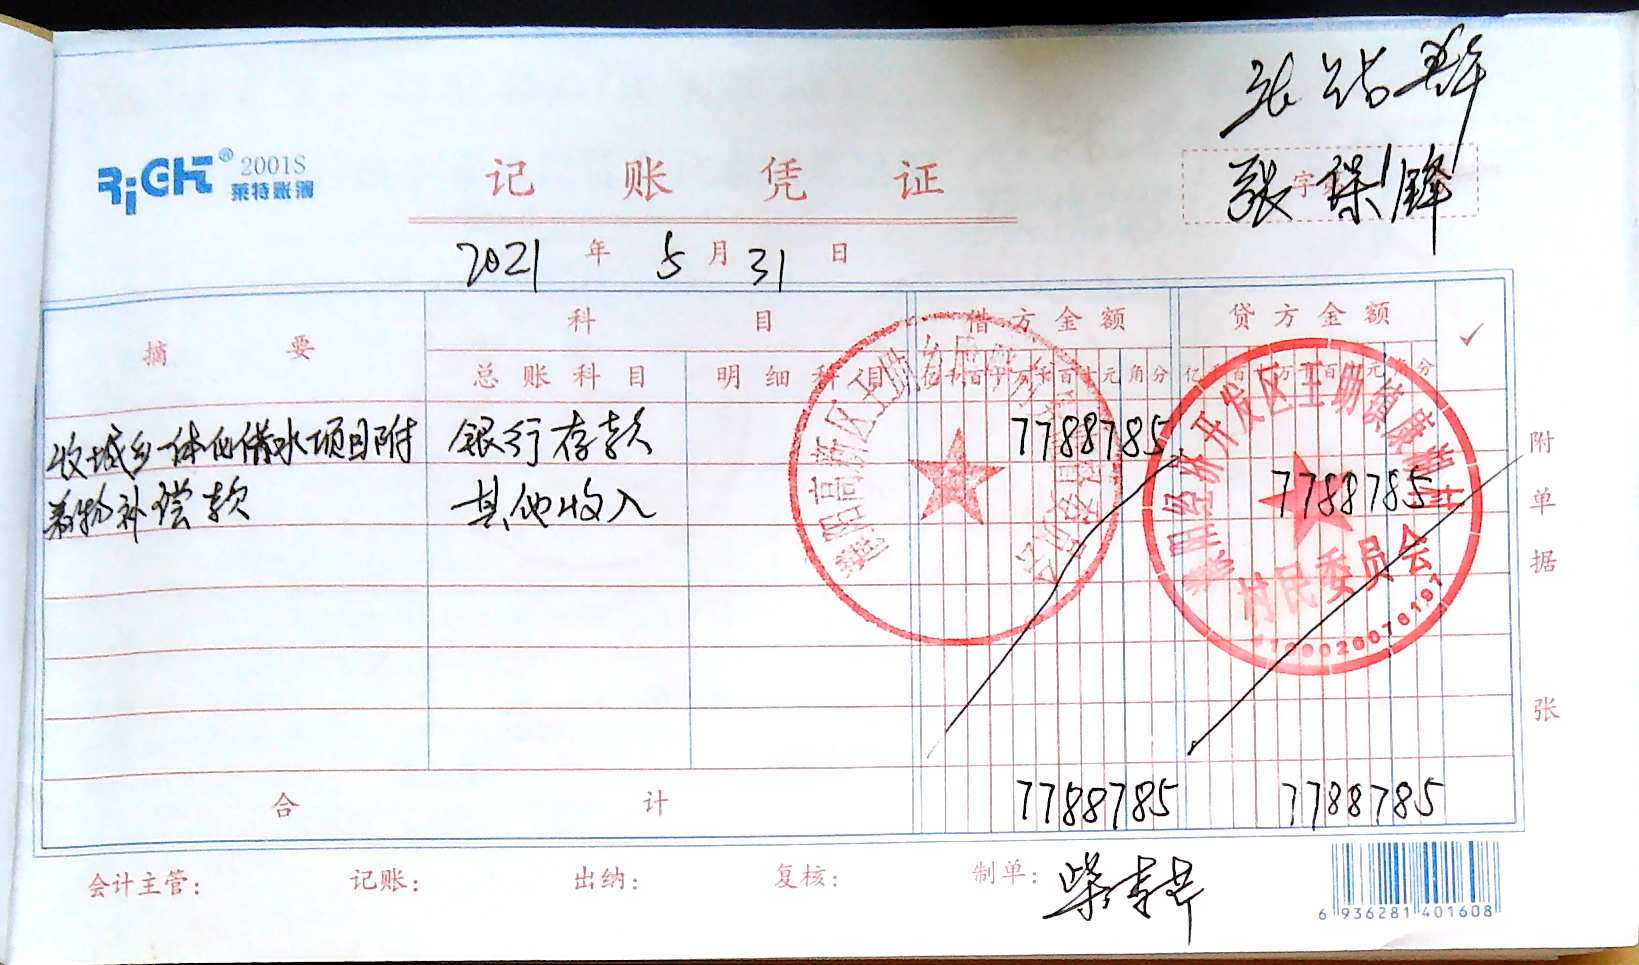 RiGHT® 2001S
莱特账簿
记账凭证
字
张保锋
2021年5月31日
摘要
科目
借方金额
贷方金额
✓
总账科目
明细科目
亿千百十万千百十元角分
亿千百十万千百十元角分
收城乡一体化供水项目附 银行存款 7788785
着物补偿款 其他收入 7788785
附单据 张
合计 7788785 7788785
村民委员会
会计主管: 记账: 出纳: 复核: 制单:
6 936281 401608